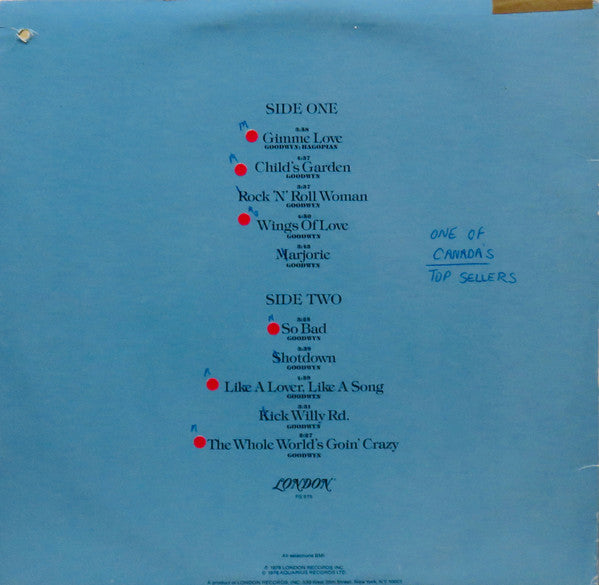 SIDE ONE
M
3:38
Gimme Love
GOODWYN; HAGOPIAN
M
4:37
Child's Garden
GOODWYN
3:37
Rock 'N' Roll Woman
GOODWYN
4:20
Wings Of Love
GOODWYN
3:43
Marjorie
GOODWYN
ONE OF
CANADA'S
TOP SELLERS
SIDE TWO
M
So Bad
GOODWYN
Shotdown
GOODWYN
Like A Lover, Like A Song
GOODWYN
3:31
Kick Willy Rd.
GOODWYN
M
The Whole World's Goin' Crazy
GOODWYN
LONDON
All selections BMI
LONDON RECORDS, INC.
AQUARIUS RECORDS LTD.
A product of LONDON RECORDS, INC. 539 West 25th Street, New York, N.Y. 10001